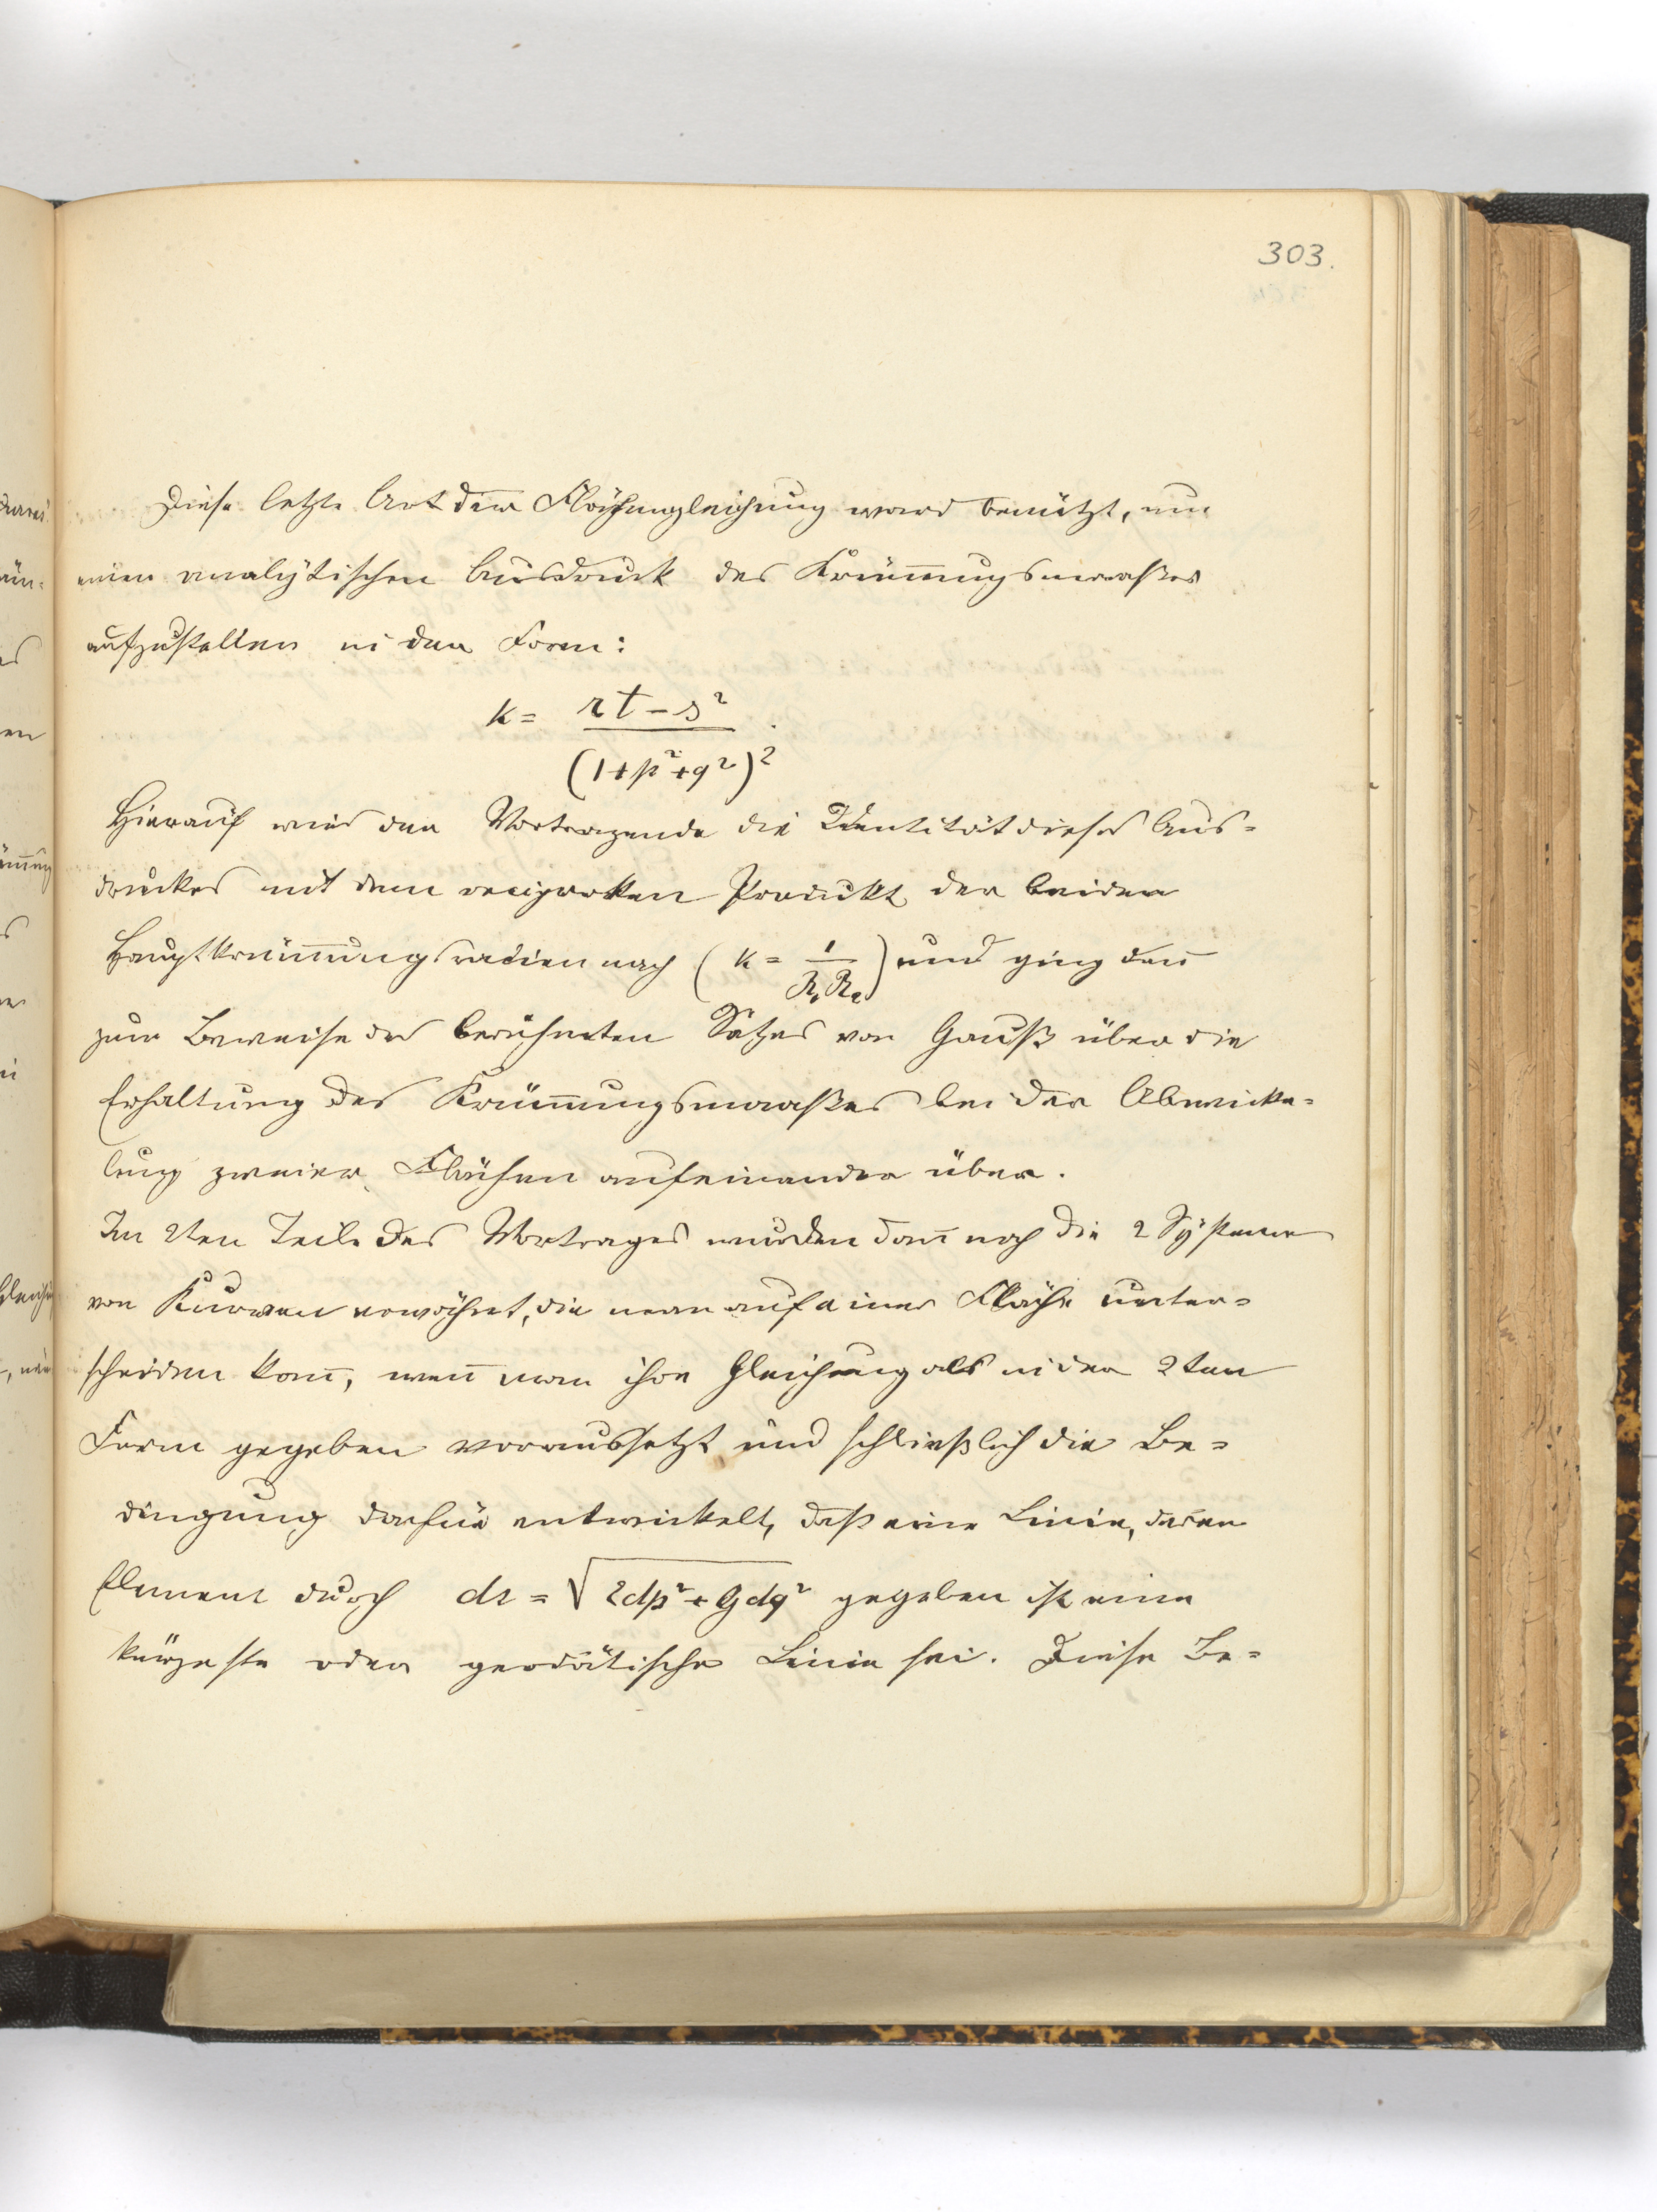 303.
Diese letzte Art der Flächengleichung ward benützt, um
einen analytischen Ausdruck des Krüm̄ungsmaaßes
aufzustellen in der Form:
k = rt - s² / (1 + p² + q²)²
Hierauf wies der Vortragende die Identität dieses Aus=
druckes mit dem reciproken Produkt der beiden
Hauptkrüm̄ungsradien nach (k = 1/R₁R₂) und ging dan̄
zum Beweise des berühmten Satzes von Gauß über die
Erhaltung des Krüm̄ungsmaaßes bei der Abwicke=
lung zweier Flächen aufeinander über.
Im 2ten Teile des Vortrages wurden dan̄ noch die 2 Systeme
von Kurven erwähnt, die man auf einer Fläche unter=
scheiden kan̄, wen̄ man ihre Gleichung als in der 2ten
Form gegeben voraussetzt und schließlich die Be=
dingung dafür entwickelt, daß eine Linie, deren
Element durch ds = √(Edp² + Gdq²) gegeben ist eine
kürzeste oder geodätische Linie sei. Diese Be=